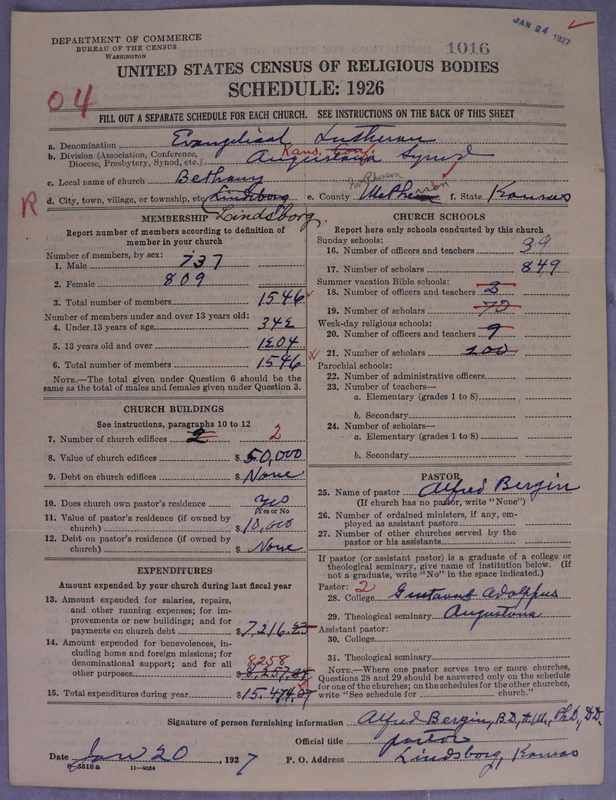 JAN 24 1927
DEPARTMENT OF COMMERCE
BUREAU OF THE CENSUS
WASHINGTON
1016
UNITED STATES CENSUS OF RELIGIOUS BODIES
SCHEDULE: 1926
04
FILL OUT A SEPARATE SCHEDULE FOR EACH CHURCH. SEE INSTRUCTIONS ON THE BACK OF THIS SHEET
a. Denomination Evangelical Lutheran
Kans. Conf.
b. Division (Association, Conference, Diocese, Presbytery, Synod, etc.) Augustana Synod
c. Local name of church Bethany
McPherson
R d. City, town, village, or township, etc. Lindsborg e. County McPherson f. State Kansas
Lindsborg
MEMBERSHIP
Report number of members according to definition of
member in your church
Number of members, by sex:
1. Male 737
2. Female 809
3. Total number of members 1546
Number of members under and over 13 years old:
4. Under 13 years of age 342
5. 13 years old and over 1204
6. Total number of members 1546
NOTE.—The total given under Question 6 should be the
same as the total of males and females given under Question 3.
CHURCH BUILDINGS
See instructions, paragraphs 10 to 12
7. Number of church edifices 2 2
8. Value of church edifices $ 50,000
9. Debt on church edifices $ None
10. Does church own pastor's residence Yes
(Yes or No
11. Value of pastor's residence (if owned by
church) $ 10,000
12. Debt on pastor's residence (if owned by
church) $ None
EXPENDITURES
Amount expended by your church during last fiscal year
13. Amount expended for salaries, repairs,
and other running expenses; for im-
provements or new buildings; and for
payments on church debt $ 7,216
14. Amount expended for benevolences, in-
cluding home and foreign missions; for
denominational support; and for all
8,258
other purposes $ 8,257.87
15. Total expenditures during year $ 15,474.07
CHURCH SCHOOLS
Report here only schools conducted by this church
Sunday schools:
16. Number of officers and teachers 39
17. Number of scholars 849
Summer vacation Bible schools:
18. Number of officers and teachers 3
19. Number of scholars 70
Week-day religious schools:
20. Number of officers and teachers 9
21. Number of scholars 200
Parochial schools:
22. Number of administrative officers
23. Number of teachers—
a. Elementary (grades 1 to 8)
b. Secondary
24. Number of scholars—
a. Elementary (grades 1 to 8)
b. Secondary
PASTOR
25. Name of pastor Alfred Bergin
(If church has no pastor, write "None")
26. Number of ordained ministers, if any, em-
ployed as assistant pastors
27. Number of other churches served by the
pastor or his assistants
If pastor (or assistant pastor) is a graduate of a college or
theological seminary, give name of institution below. (If
not a graduate, write "No" in the space indicated.)
Pastor: 2
28. College Gustavus Adolphus
29. Theological seminary Augustana
Assistant pastor:
30. College
31. Theological seminary
NOTE.—Where one pastor serves two or more churches,
Questions 28 and 29 should be answered only on the schedule
for one of the churches; on the schedules for the other churches,
write "See schedule for church."
Signature of person furnishing information Alfred Bergin, B.D., A.M., Ph.D., D.D.
Official title pastor
Date Jan 20 1927 P. O. Address Lindsborg, Kansas
8-5518a 11-9054